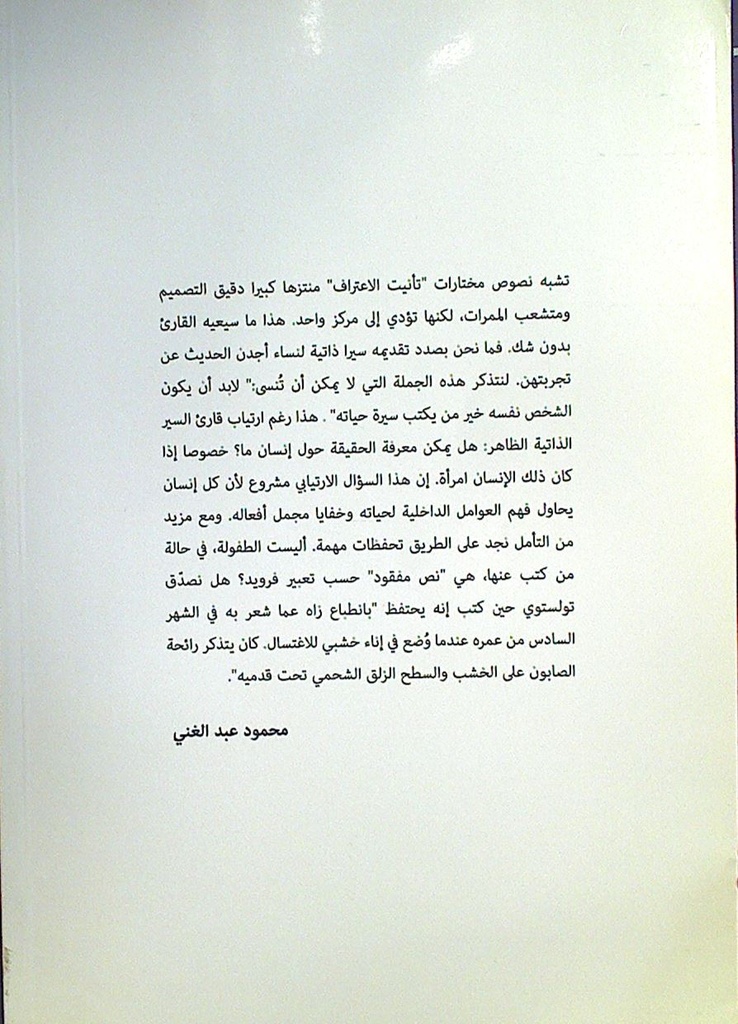 تشبه نصوص مختارات "تأنيت الاعتراف" منتزها كبيرا دقيق التصميم
ومتشعب الممرات، لكنها تؤدي إلى مركز واحد. هذا ما سيعيه القارئ
بدون شك. فما نحن بصدد تقديمه سيرا ذاتية لنساء أجدن الحديث عن
تجربتهن. لنتذكر هذه الجملة التي لا يمكن أن تُنسى:" لابد أن يكون
الشخص نفسه خير من يكتب سيرة حياته" . هذا رغم ارتياب قارئ السير
الذاتية الظاهر: هل يمكن معرفة الحقيقة حول إنسان ما؟ خصوصا إذا
كان ذلك الإنسان امرأة. إن هذا السؤال الارتيابي مشروع لأن كل إنسان
يحاول فهم العوامل الداخلية لحياته وخفايا مجمل أفعاله. ومع مزيد
من التأمل نجد على الطريق تحفظات مهمة. أليست الطفولة، في حالة
من كتب عنها، هي "نص مفقود" حسب تعبير فرويد؟ هل نصدّق
تولستوي حين كتب إنه يحتفظ "بانطباع زاه عما شعر به في الشهر
السادس من عمره عندما وُضع في إناء خشبي للاغتسال. كان يتذكر رائحة
الصابون على الخشب والسطح الزلق الشحمي تحت قدميه".
محمود عبد الغني